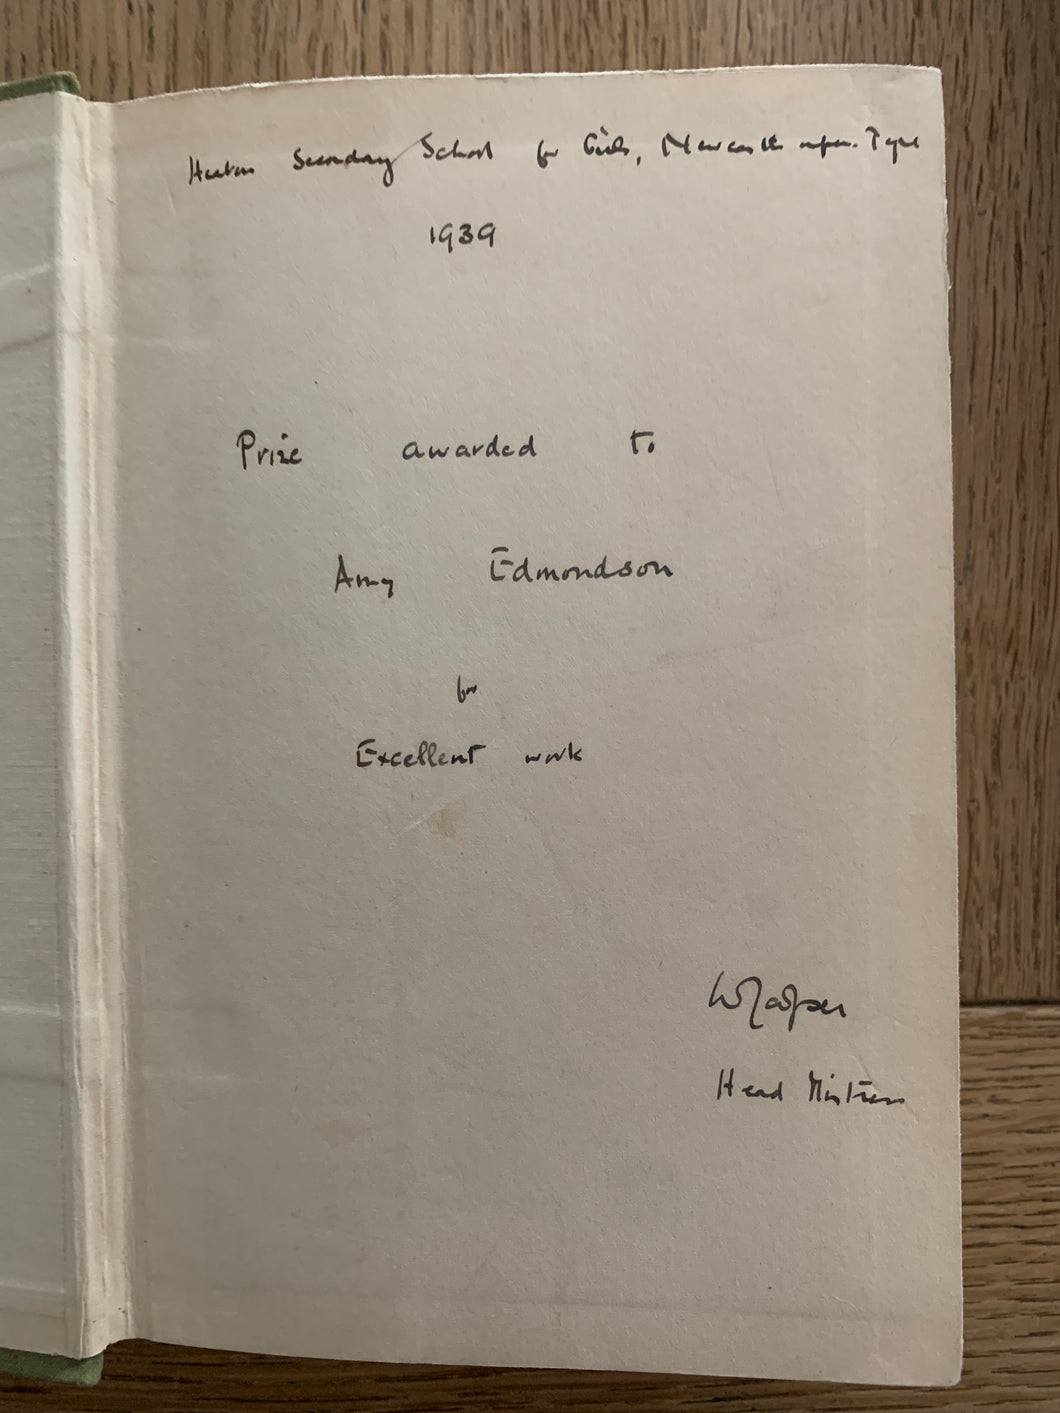 Heaton Secondary School for Girls, Newcastle upon Tyne
1939
Prize awarded to
Amy Edmondson
for
Excellent work
W Cooper
Head Mistress